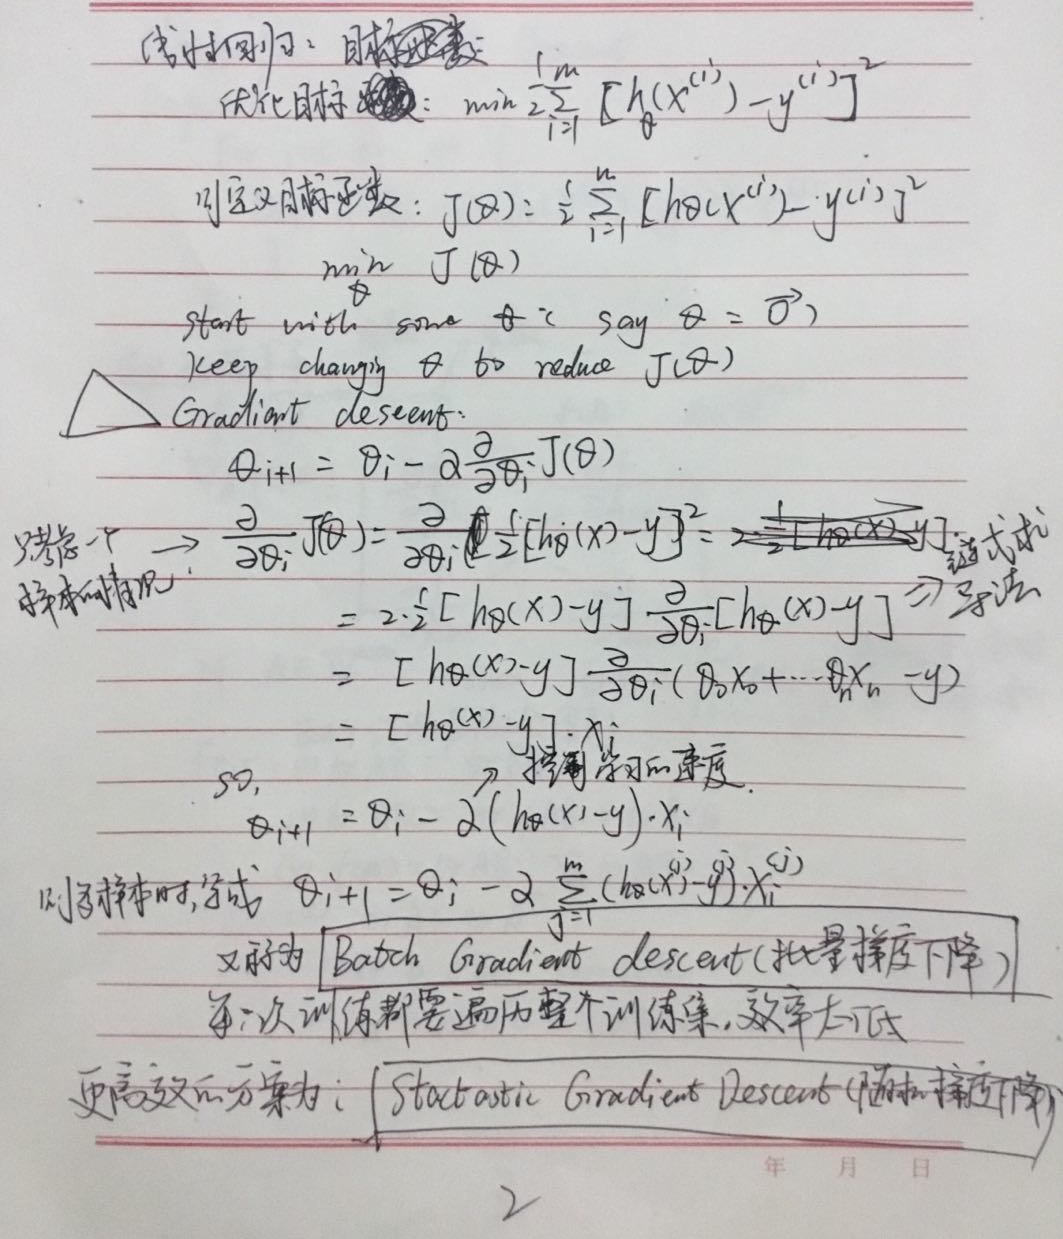 线性回归:
优化目标: min 1/2 Σ_{i=1}^{m} [h_θ(x^{(i)}) - y^{(i)}]^2
则定义目标函数: J(θ) = 1/2 Σ_{i=1}^{n} [hθ(x^{(i)}) - y^{(i)}]^2
min_θ J(θ)
start with some θ (say θ = \vec{0})
keep changing θ to reduce J(θ)
Gradient descent:
θ_{i+1} = θ_i - α ∂/∂θ_i J(θ)
只考虑一个样本的情况 → ∂/∂θ_i J(θ) = ∂/∂θ_i 1/2 [hθ(x) - y]^2 =
= 2·1/2 [hθ(x) - y] ∂/∂θ_i [hθ(x) - y] => 链式求导法
= [hθ(x) - y] ∂/∂θ_i (θ_0 x_0 + ··· θ_n x_n - y)
= [hθ(x) - y]·x_i
↗ 控制学习的速度.
so,
θ_{i+1} = θ_i - α(hθ(x) - y)·x_i
则多样本时,写成 θ_{i+1} = θ_i - α Σ_{j=1}^{m} (hθ(x^{(j)}) - y^{(j)})·x_i^{(j)}
又称为 Batch Gradient descent (批量梯度下降)
每一次训练都要遍历整个训练集,效率太低
更高效的方案为: Stoctastic Gradient Descent (随机梯度下降)
年 月 日
2